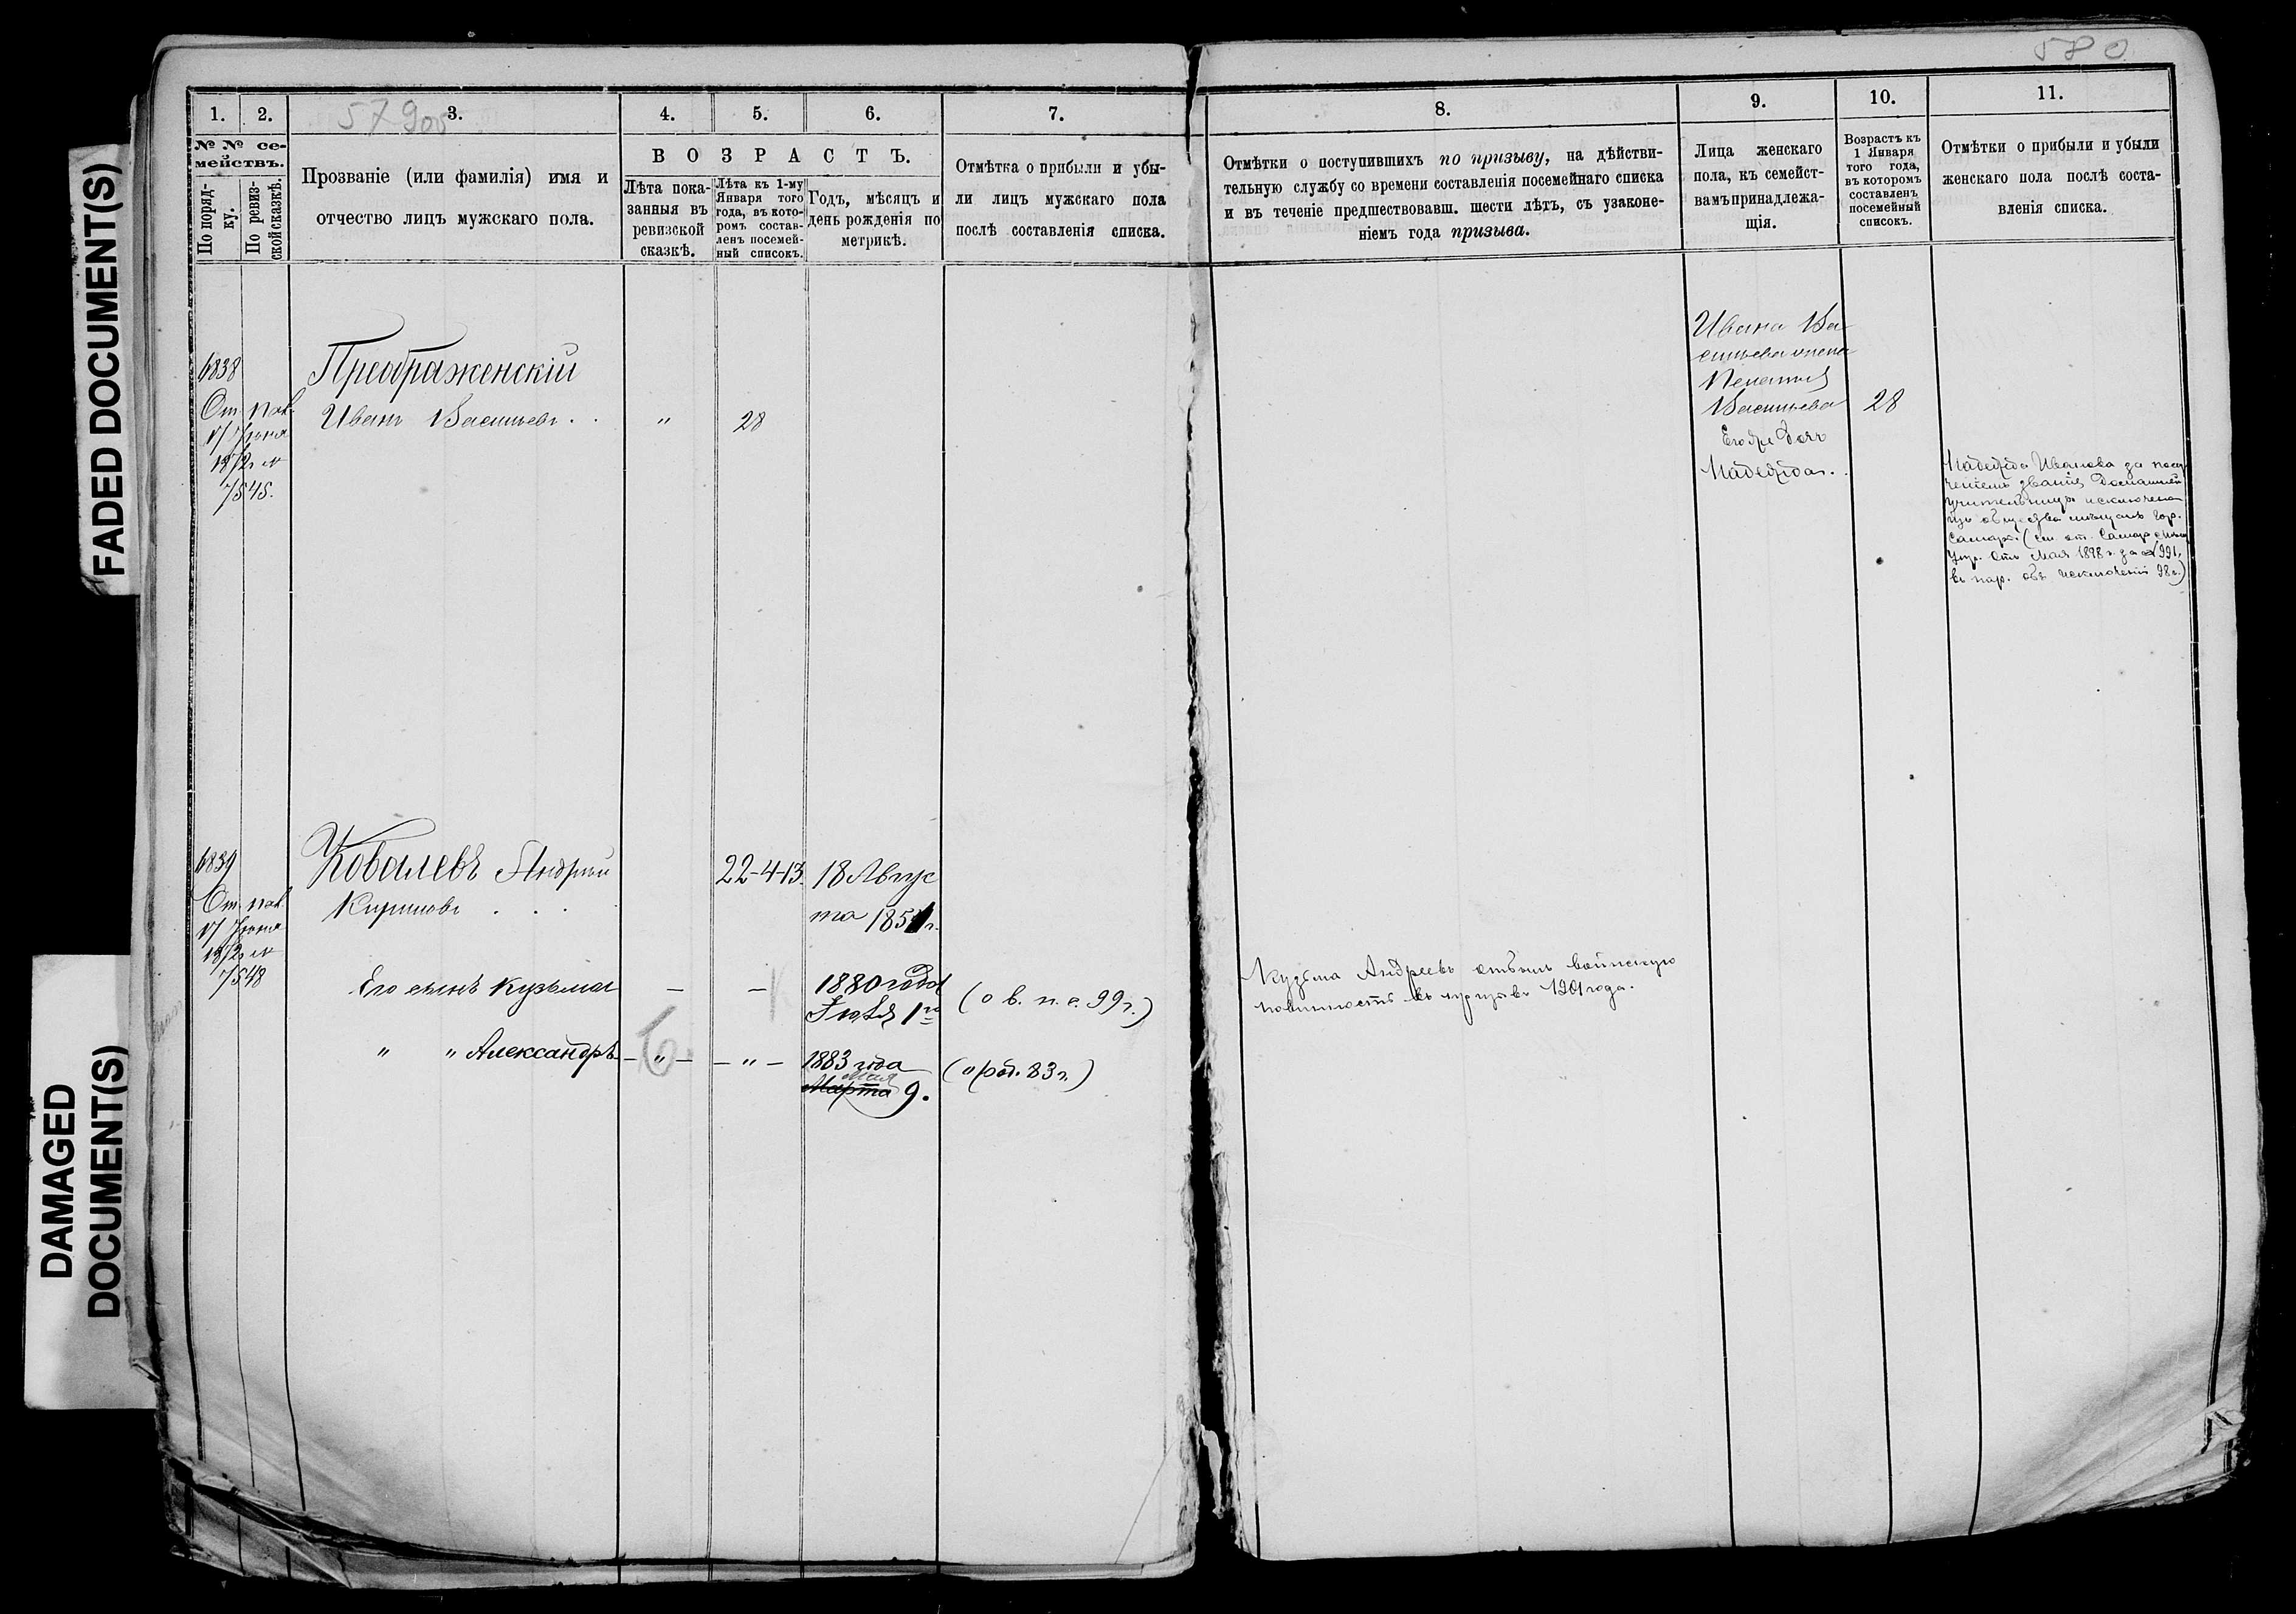 580
57 9об
1. 2. 3. 4. 5. 6. 7.
№ № се-
мействъ.
По поряд-
ку.
По ревиз-
ской сказкѣ.
Прозваніе (или фамилія) имя и
отчество лицъ мужскаго пола.
ВОЗРАСТЪ.
Лѣта пока-
занныя въ
ревизской
сказкѣ.
Лѣта къ 1-му
Января того
года, въ кото-
ромъ состав-
ленъ посемей-
ный списокъ.
Годъ, мѣсяцъ и
день рожденія по
метрикѣ.
Отмѣтка о прибыли и убы-
ли лицъ мужскаго пола
послѣ составленія списка.
6838
От пов.
17 Июня
1872 №
7545.
Преображенскій
Иванъ Васильевъ . .
"
28
6839
От пов.
17 Июня
1872 №
7548
Ковалевъ Андрей
Кириловъ . . .
22-4-13.
18 Авгус
та 1851 г.
Его сынъ Кузьма
— —
1880 года
Іюля 1го
(о в. п. с. 99 г.)
" " Александръ
— " — — " —
1883 года
Мая
Марта 9.
(о род. 83 г.)
8. 9. 10. 11.
Отмѣтки о поступившихъ по призыву, на дѣйстви-
тельную службу со времени составленія посемейнаго списка
и въ теченіе предшествовавш. шести лѣтъ, съ узаконе-
ніемъ года призыва.
Лица женскаго
пола, къ семейст-
вамъ принадлежа-
щія.
Возрастъ къ
1 Января
того года,
въ которомъ
составленъ
посемейный
списокъ.
Отмѣтки о прибыли и убыли
женскаго пола послѣ соста-
вленія списка.
Ивана Ва
сильева жена
Пелагия
Васильева
28
Его же дочь
Надежда . .
Надежда Иванова за полу
ченіемъ званія Домашней
учительницы исключена
изъ общества мѣщанъ гор.
Самары (см. от. Самар. Мѣщ.
Упр. отъ Мая 1898 г. за № 991,
въ нар. объ исключеніи 98 г.)
Кузьма Андреевъ отбылъ воинскую
повинность въ призывъ 1901 года.
FADED DOCUMENT(S)
DAMAGED
DOCUMENT(S)